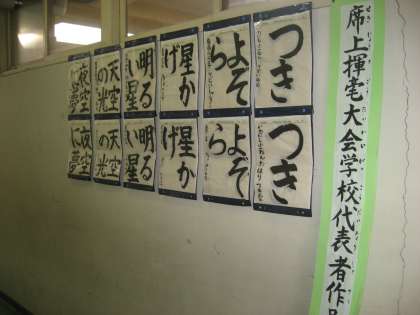 席上揮毫大会学校代表者作
つき
よぞ
ら
星か
げ
明る
い星
天空
の光
夜空
に夢
つき
よぞ
ら
星か
げ
明る
い星
天空
の光
夜空
に夢